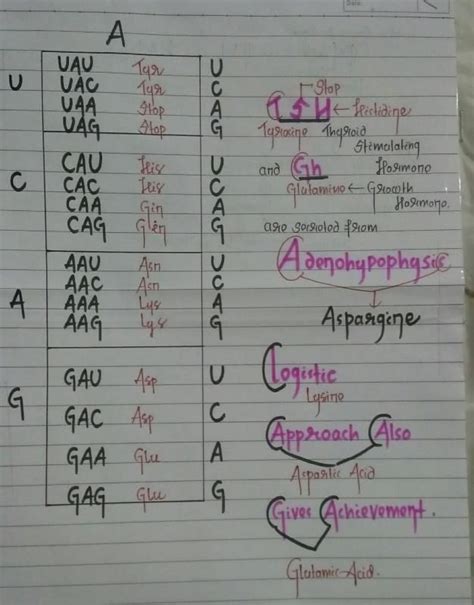 A
U
UAU Tyr U
UAC Tyr C
UAA Stop A
UAG Stop G
C
CAU His U
CAC His C
CAA Gin A
CAG Glen G
A
AAU Asn U
AAC Asn C
AAA Lys A
AAG Lys G
G
GAU Asp U
GAC Asp C
GAA Glu A
GAG Glu G
Stop
TSH ← Histidine
Tyrosine Thyroid
Stimulating
Hormone
and Gh
Glutamine ← Growth
Hormone.
are secreted from
Adenohypophysis
Aspargine
Logistic
Lysine
Approach Also
Aspartic Acid
Gives Achievement.
Glutamic-Acid.